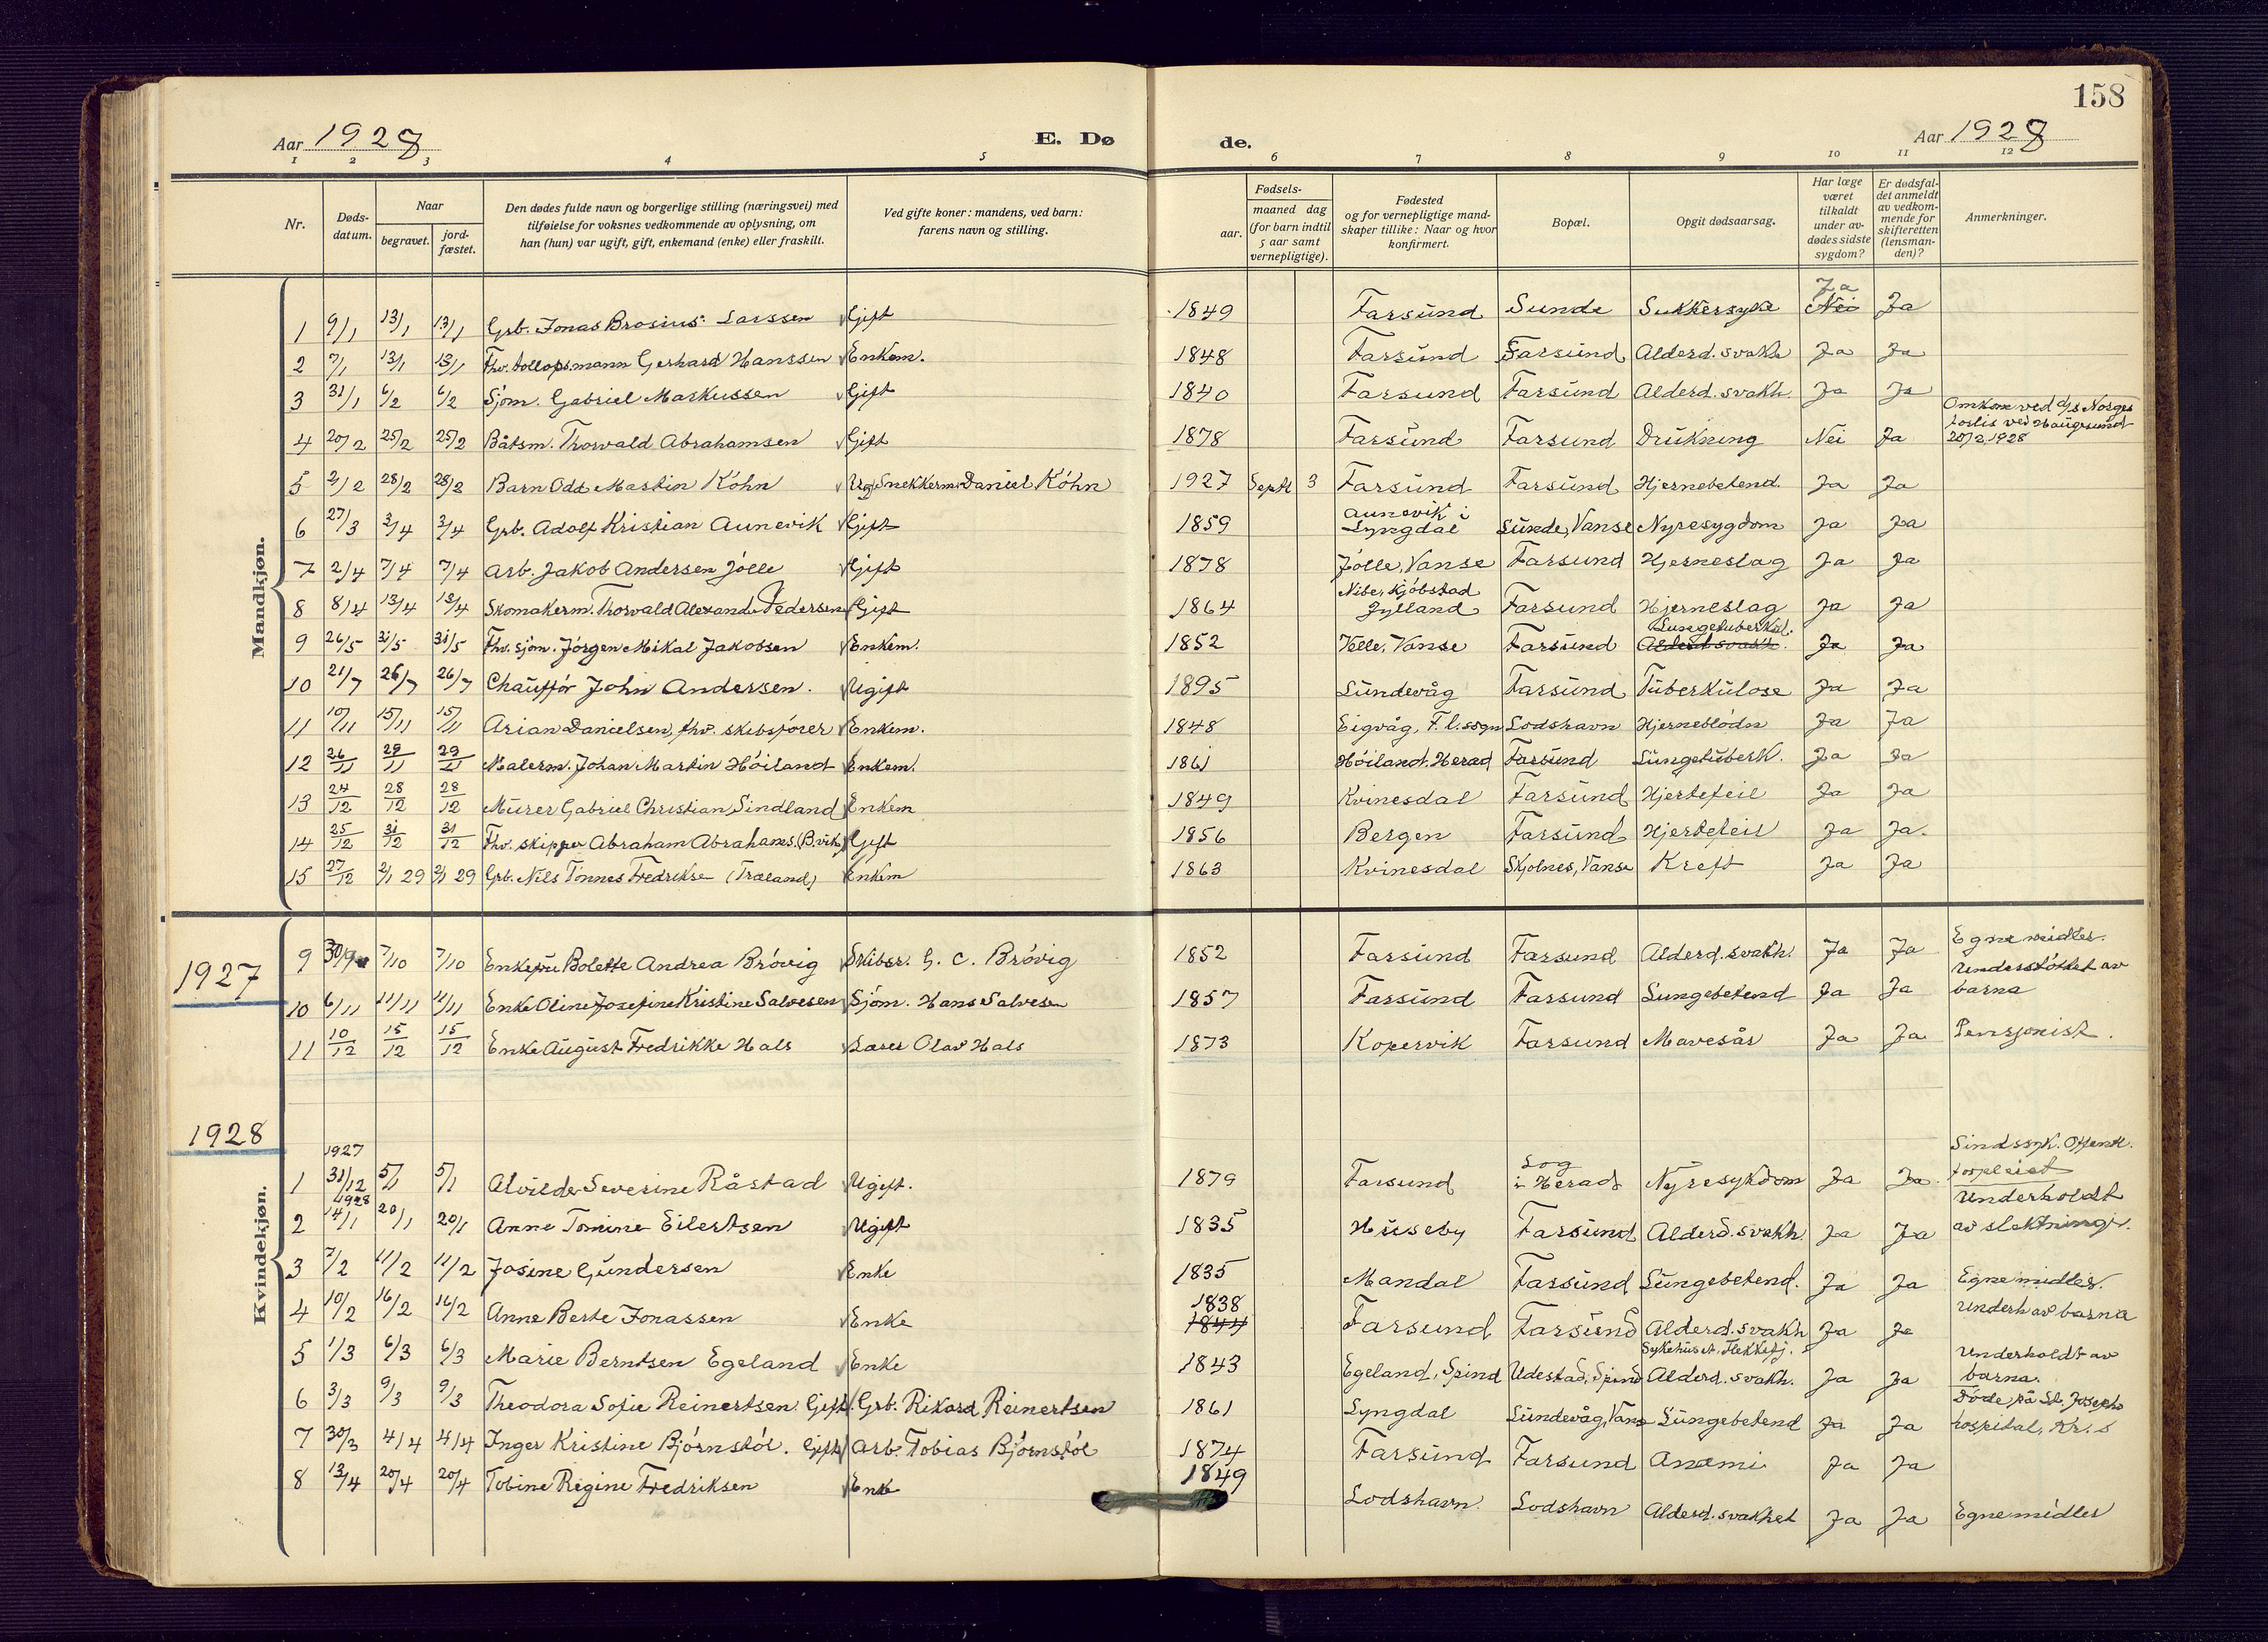 158
Aar 1928
E. Dø
de.
Aar 1928
1 2 3 4 5 6 7 8 9 10 11 12
Nr.
Døds-
datum.
Naar
begravet.
jord-
fæstet.
Den dødes fulde navn og borgerlige stilling (næringsvei) med
tilføielse for voksnes vedkommende av oplysning, om
han (hun) var ugift, gift, enkemand (enke) eller fraskilt.
Ved gifte koner: mandens, ved barn:
farens navn og stilling.
Fødsels-
aar.
maaned dag
(for barn indtil
5 aar samt
vernepligtige).
Fødested
og for vernepligtige mand-
skaper tillike: Naar og hvor
konfirmert.
Bopæl.
Opgit dødsaarsag.
Har læge
været
tilkaldt
under av-
dødes sidste
sygdom?
Er dødsfal-
det anmeldt
av vedkom-
mende for
skifteretten
(lensman-
den)?
Anmerkninger.
Mandkjøn.
1 9/1 13/1 13/1 Grb. Jonas Brosius Larssen Gift 1849 Farsund Sunde Sukkersyke Nei Ja Ja
2 7/1 13/1 13/1 Fhv. tollopsmann Gerhard Hanssen Enkem. 1848 Farsund Farsund Alderd. svakh Ja Ja
3 31/1 6/2 6/2 Sjøm. Gabriel Markussen Gift 1840 Farsund Farsund Alderd. svakh. Ja Ja
4 20/2 25/2 25/2 Båtsm. Thorvald Abrahamsen Gift 1878 Farsund Farsund Drukning Nei Ja Omkom ved d/s Norges
forlis ved Haugesund
20/2 1928
5 2/2 28/2 28/2 Barn Odd Martin Köhn Snekkerm. Daniel Köhn 1927 Septr 3 Farsund Farsund Hjernebetend. Ja Ja
6 27/3 3/4 3/4 Grb. Adolf Kristian Aunevik Gift 1859 Aunevik i
Lyngdal Sunde, Vanse Nyresygdom Ja Ja
7 2/4 7/4 7/4 Arb. Jakob Andersen Jölle Gift 1878 Jölle, Vanse Farsund Hjerneslag Ja Ja
8 8/4 13/4 13/4 Skomakerm. Thorvald Alexand. Pedersen Gift 1864 Nibe, Kjöbstad
Jylland Farsund Hjerneslag Ja Ja
9 26/5 31/5 31/5 Fhv. sjøm. Jörgen Mikal Jakobsen Enkem. 1852 Velle, Vanse Farsund Lungetuberkul.
Alderd. svakh. Ja Ja
10 21/7 26/7 26/7 Chaufför John Andersen. Ugift 1895 Lundevåg Farsund Tuberkulose Ja Ja
11 10/11 15/11 15/11 Arian Danielsen, fhv. skibsförer Enkem. 1848 Eigvåg, F. l. sogn Lodshavn Hjerneblödn Ja Ja
12 26/11 29/11 29/11 Malerm. Johan Martin Höiland Enkem. 1861 Höiland, Herad Farsund Lungetuberk. Ja Ja
13 24/12 28/12 28/12 Murer Gabriel Christian Sindland Enkem 1849 Kvinesdal Farsund Hjertefeil Ja Ja
14 25/12 31/12 31/12 Fhv. skipper Abraham Abrahams. (B.vik) Gift 1856 Bergen Farsund Hjertefeil Ja Ja.
15 27/12 2/1 29 2/1 29 Grb. Nils Tönnes Fredrikse (Træland) Enkem 1863 Kvinesdal Skjolnes, Vanse Kreft Ja Ja
1927
9 30/9 7/10 7/10 Enkefru Bolette Andrea Brövig Skibsr. G. C. Brövig 1852 Farsund Farsund Alderd. svakh. Ja Ja Egne midler.
10 6/11 11/11 11/11 Enke Oline Josefine Kristine Salvesen Sjöm. Hans Salvesen 1857 Farsund Farsund Lungebetend Ja Ja Understöttet av
barna
11 10/12 15/12 15/12 Enke August Fredrikke Hals Lærer Olav Hals 1873 Kopervik Farsund Mavesår Ja Ja Pensjonist.
1928
Kvindekjøn.
1927
1 31/12 5/1 5/1 Alvilde Severine Råstad Ugift. 1879 Farsund Log
i Herad Nyresykdom Ja Ja Sindssyk. Offentl.
forpleiet
1928
2 14/1 20/1 20/1 Anne Tomine Eilertsen Ugift 1835 Huseby Farsund Alderd. svakh Ja Ja Underholdt
av slektninger.
3 7/2 11/2 11/2 Josine Gundersen Enke 1835 Mandal Farsund Lungebetend. Ja Ja Egne midler.
4 10/2 16/2 16/2 Anne Berte Jonassen Enke 1838
1844 Farsund Farsund Alderd. svakh Ja Ja Underh av barna
5 1/3 6/3 6/3 Marie Berntsen Egeland Enke 1843 Egeland, Spind Udestad, Spind Sykehuset, Flekkefj.
Alderd. svakh. Ja Ja Underholdt av
barna.
6 3/3 9/3 9/3 Theodora Sofie Reinertsen. Gift Grb. Rikard Reinertsen 1861 Lyngdal Lundevåg, Vanse Lungebetend Ja Ja Döde på St. Josephs
hospital, Kr. s
7 30/3 4/4 4/4 Inger Kristine Björnstöl. Gift Arb. Tobias Björnstöl 1874 Farsund Farsund Anæmi Ja Ja
8 13/4 20/4 20/4 Tobine Regine Fredriksen Enke 1849 Lodshavn. Lodshavn Alderd. svakhet Ja Ja Egne midler